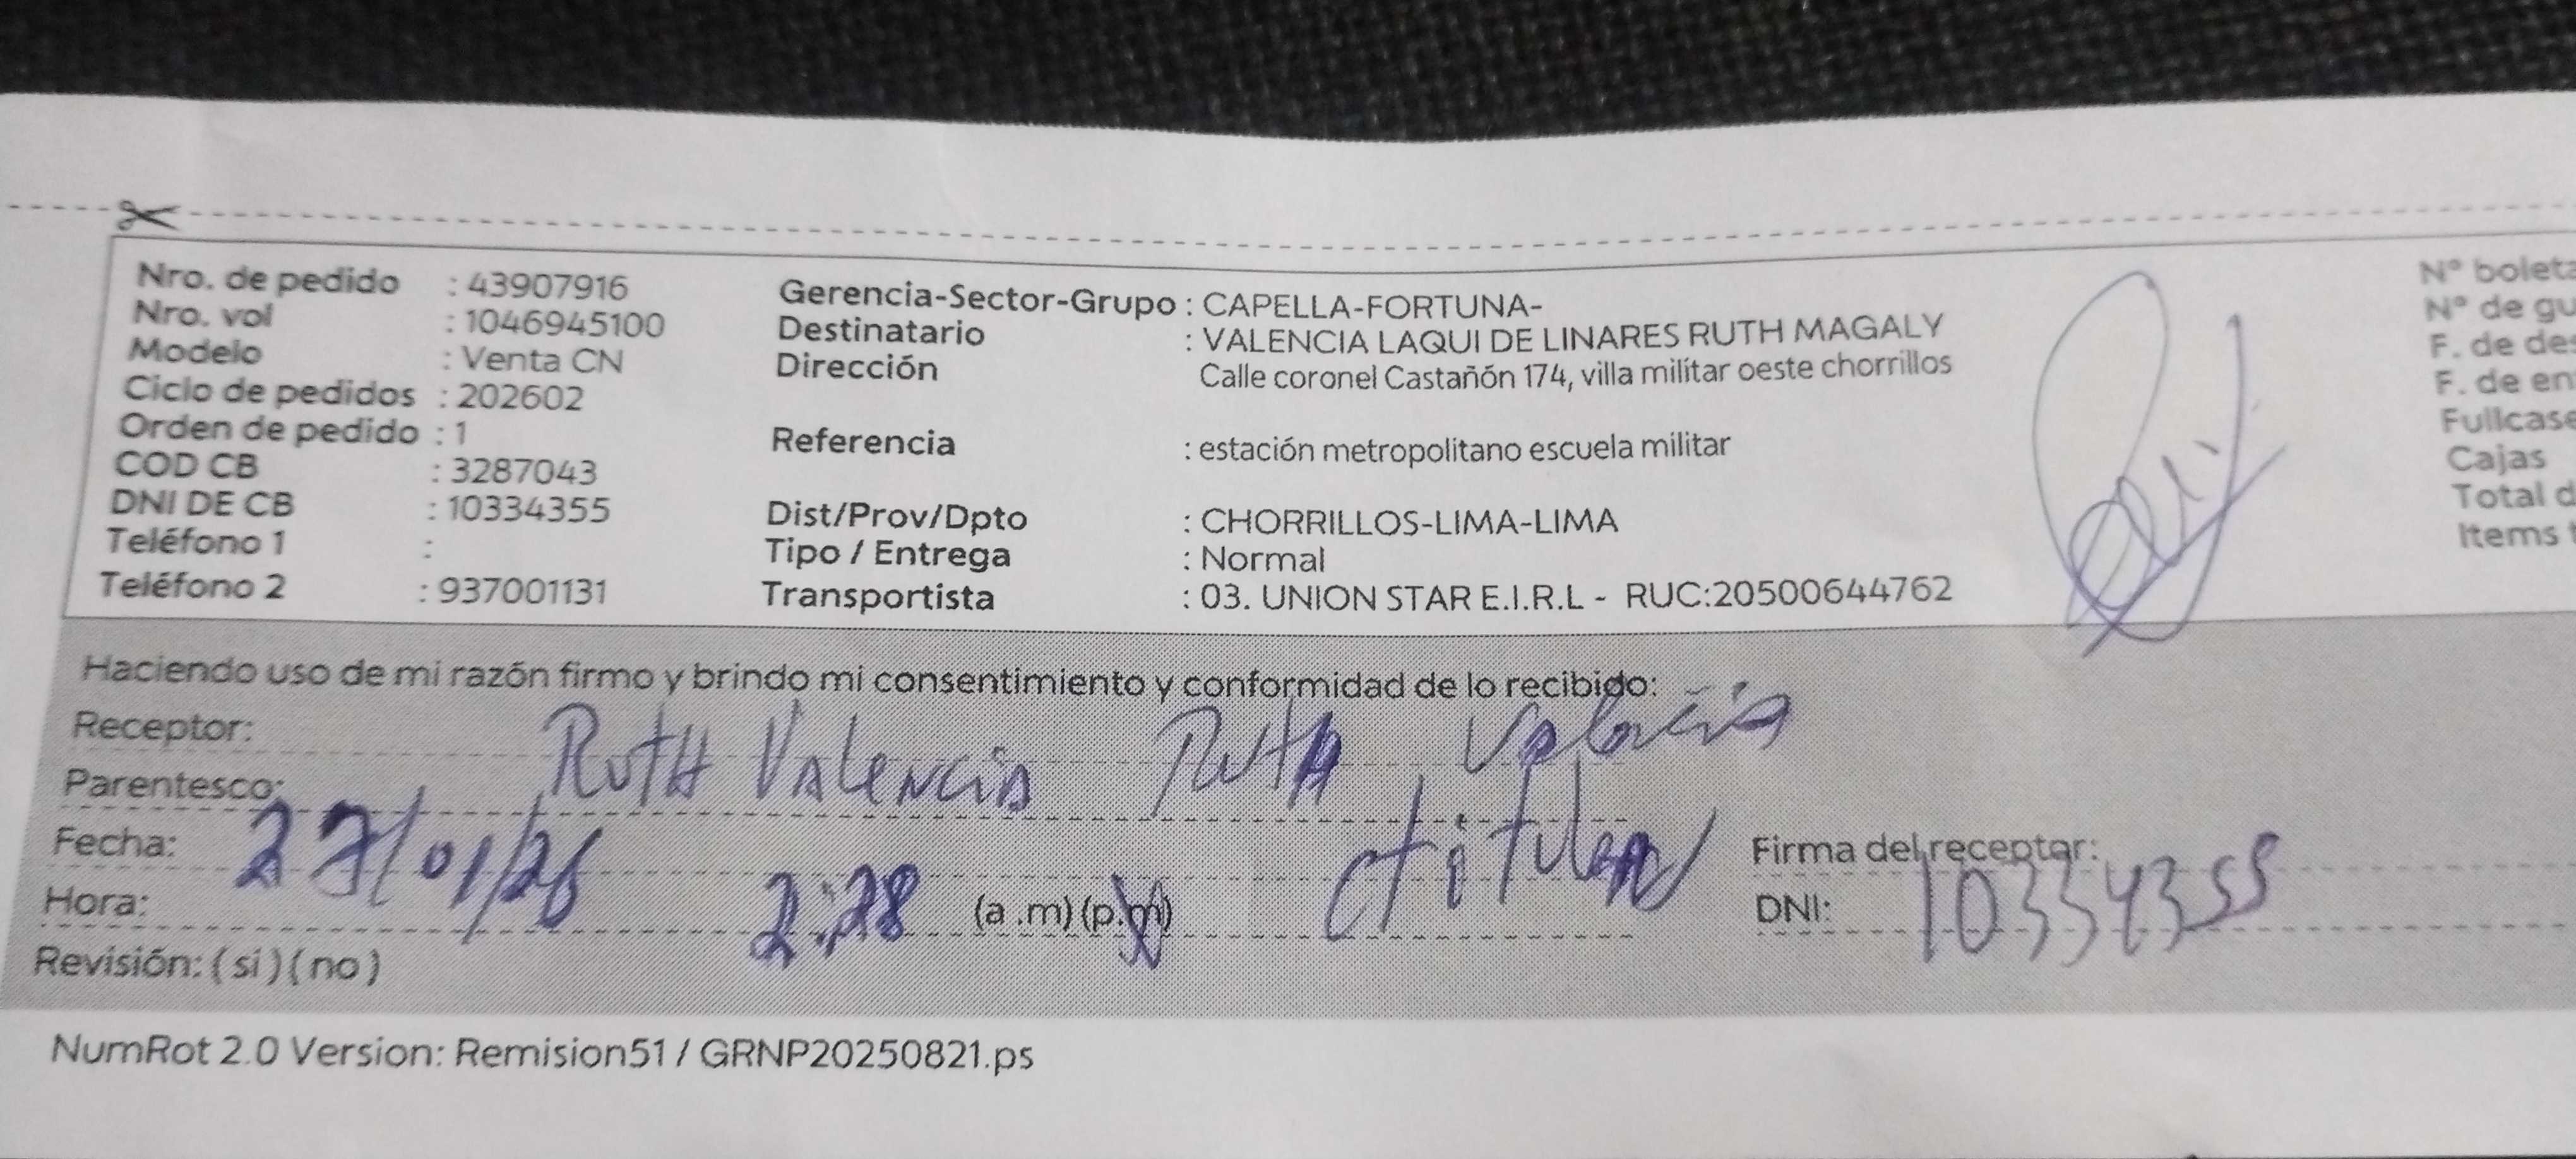 Nro. de pedido : 43907916
Nro. vol : 1046945100
Modelo : Venta CN
Ciclo de pedidos : 202602
Orden de pedido : 1
COD CB : 3287043
DNI DE CB : 10334355
Teléfono 1 :
Teléfono 2 : 937001131
Gerencia-Sector-Grupo : CAPELLA-FORTUNA-
Destinatario : VALENCIA LAQUI DE LINARES RUTH MAGALY
Dirección Calle coronel Castañón 174, villa militar oeste chorrillos
Referencia : estación metropolitano escuela militar
Dist/Prov/Dpto : CHORRILLOS-LIMA-LIMA
Tipo / Entrega : Normal
Transportista : 03. UNION STAR E.I.R.L - RUC:20500644762
N° boleta
N° de gu
F. de des
F. de en
Fullcase
Cajas
Total d
Items t
Haciendo uso de mi razón firmo y brindo mi consentimiento y conformidad de lo recibido:
Receptor: RutH Valencia Ruth Valencia
Parentesco: titular
Fecha: 27/01/26
Firma del receptor:
Hora: 2:28 (a .m) (p.m)
DNI: 10334355
Revisión: ( si ) ( no )
NumRot 2.0 Version: Remision51 / GRNP20250821.ps